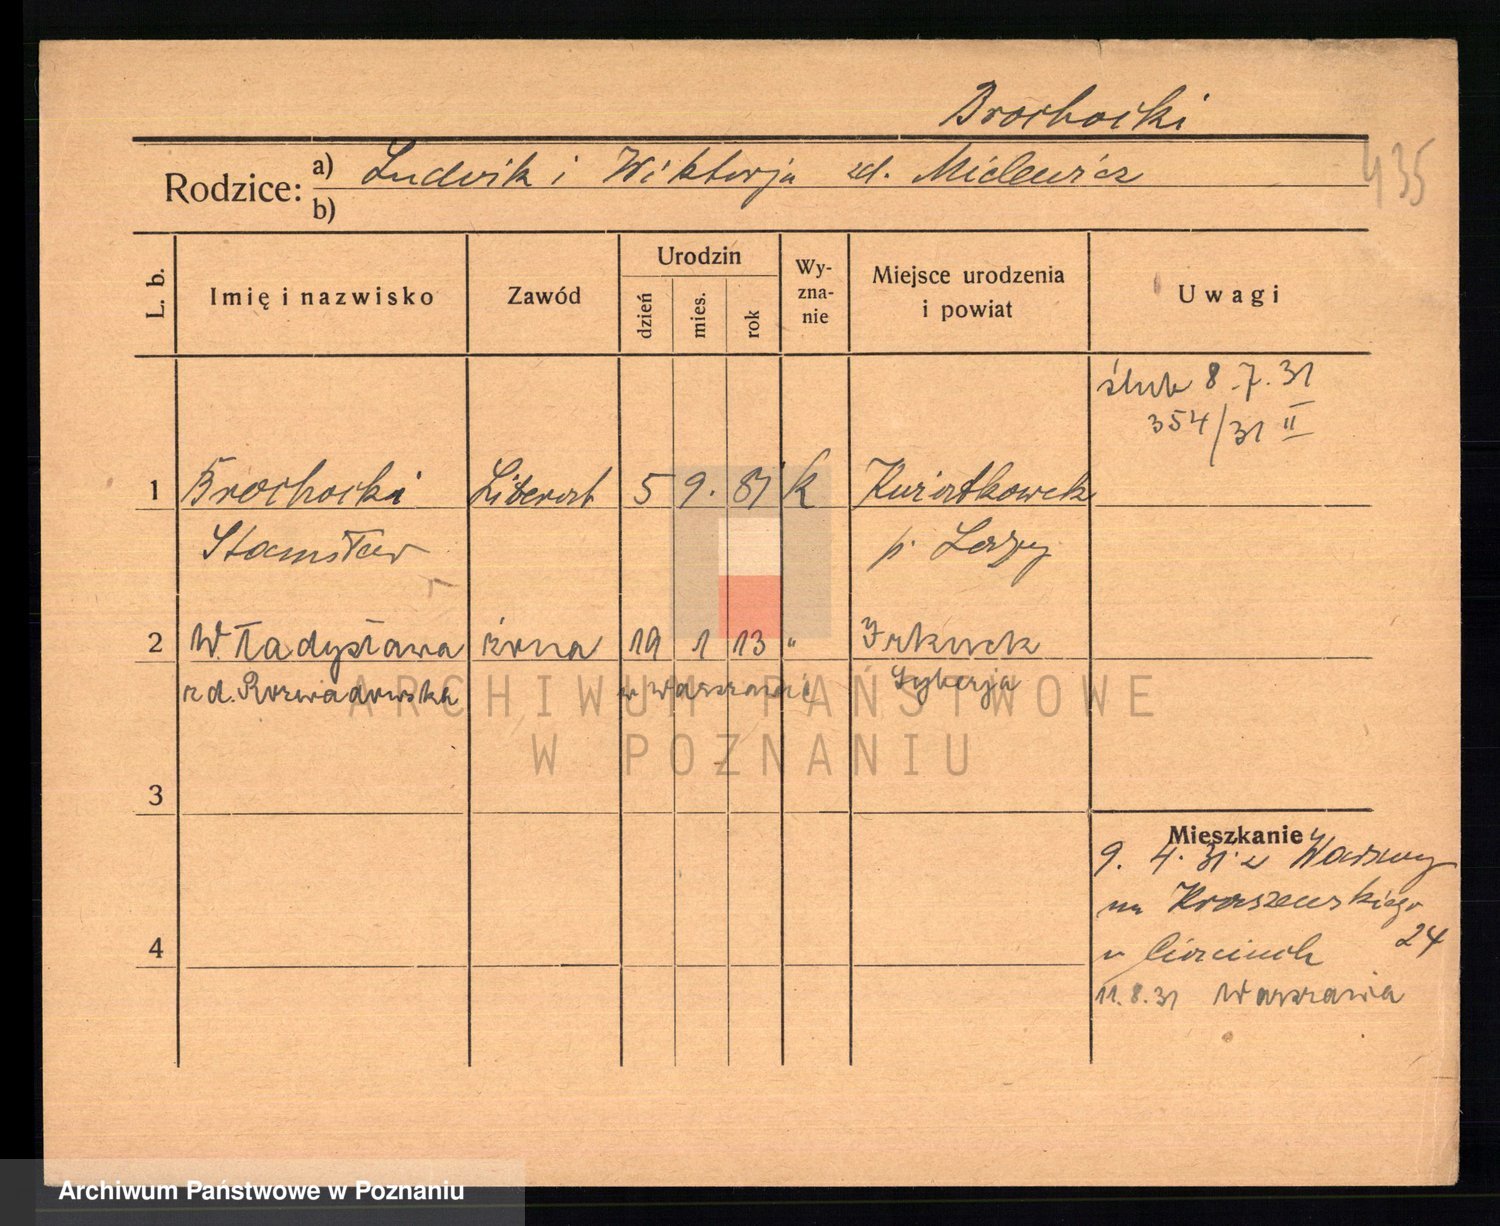 Brochocki
435
Rodzice: a) Ludwik i Wiktorja zd. Miclewicz
b)
L. b. Imię i nazwisko Zawód Urodzin dzień mies. rok Wy-zna-nie Miejsce urodzenia i powiat Uwagi
ślub 8.7.31
354/31 II
1 Brochocki Literat 5 9. 81 k Kwiatkowek
Stanisław p.
2 Władysława żona 19 1 13 " Irkuck
z d. Rozwadowska w Warszawie Syberja
3
4
Mieszkanie
9. 4. 31. z Warszawy
na Kraszewskiego
24
11.8.31 Warszawa
ARCHIWUM PAŃSTWOWE
W POZNANIU
Archiwum Państwowe w Poznaniu